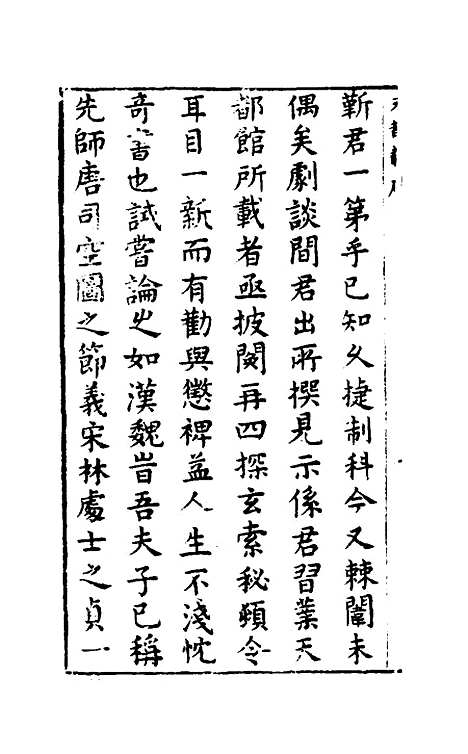 靳君一第乎已知乆捷制科今又棘闈未
偶矣劇談間君出所撰見示係君習業天
都館所載者亟披閱再四探玄索秘頻令
耳目一新而有勸與懲裨益人生不淺忱
奇書也試嘗論之如漢魏昔吾夫子已稱
先師唐司空圖之節義宋林處士之貞一